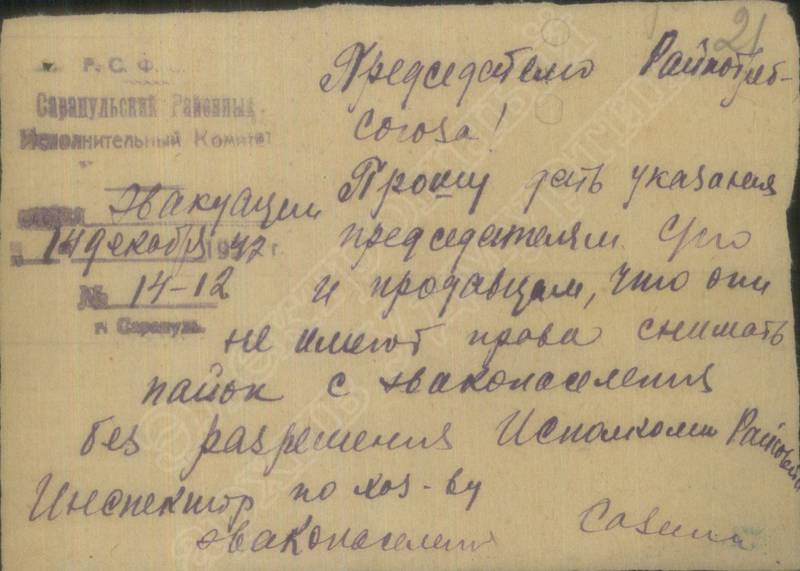 21
Р. С. Ф.
Сарапульский Районный
Исполнительный Комитет
эвакуации
14 декабря 1942 г.
№ 14-12
г. Сарапуль.
Председателю Райпотреб-
союза!
Прошу дать указания
председателям
и продавцам, что они
не имеют права снимать
паёк с эваконаселения
без разрешения Исполкома
Инспектор по хоз-ву
эваконаселения